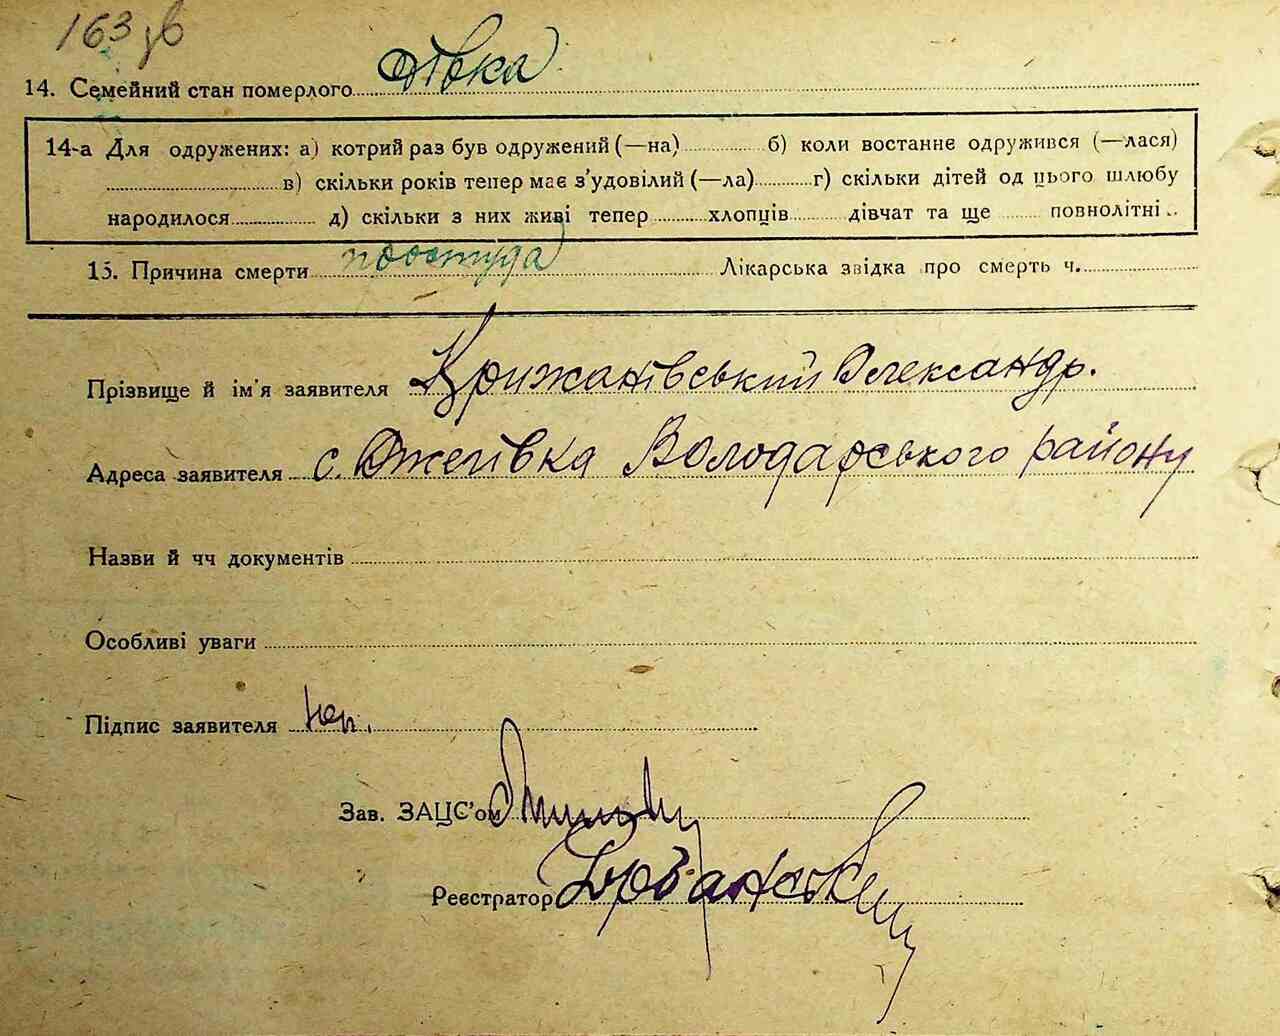 163 зв
14. Семейний стан померлого дівка
14-а Для одружених: а) котрий раз був одружений (—на) б) коли востаннє одружився (—лася)
в) скільки років тепер має з'удовілий (—ла) г) скільки дітей од цього шлюбу
народилося д) скільки з них живі тепер хлопців дівчат та ще повнолітні
15. Причина смерти простуда Лікарська звідка про смерть ч.
Прізвище й ім'я заявителя Крижанівський Олександр.
Адреса заявителя с. Володарського району
Назви й чч документів
Особливі уваги
Підпис заявителя
Зав. ЗАЦС'ом
Реєстратор